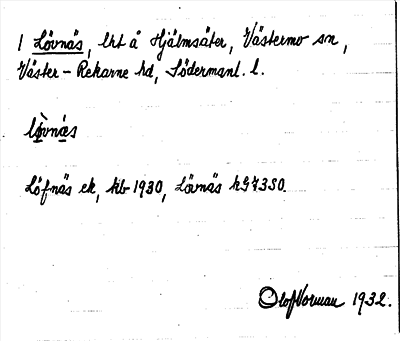 1 Lövnäs, lht å Hjälmsäter, Västermo sn,
Väster-Rekarne hd, Södermanl. l.
lòvnäs
Löfnäs ek, kb 1930, Lövnäs
Olof Vorman 1932.